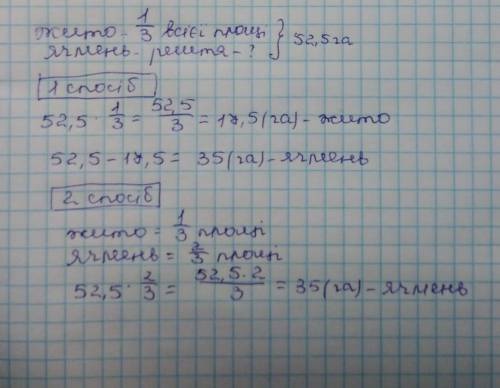 жито - 1/3 всієї площі } 52,5 га
ячмень - решта - ?
1 спосіб
52,5 · 1/3 = 52,5/3 = 17,5 (га) - жито
52,5 - 17,5 = 35 (га) - ячмень
2 спосіб
жито = 1/3 площі
ячмень = 2/3 площі
52,5 · 2/3 = 52,5·2/3 = 35 (га) - ячмень